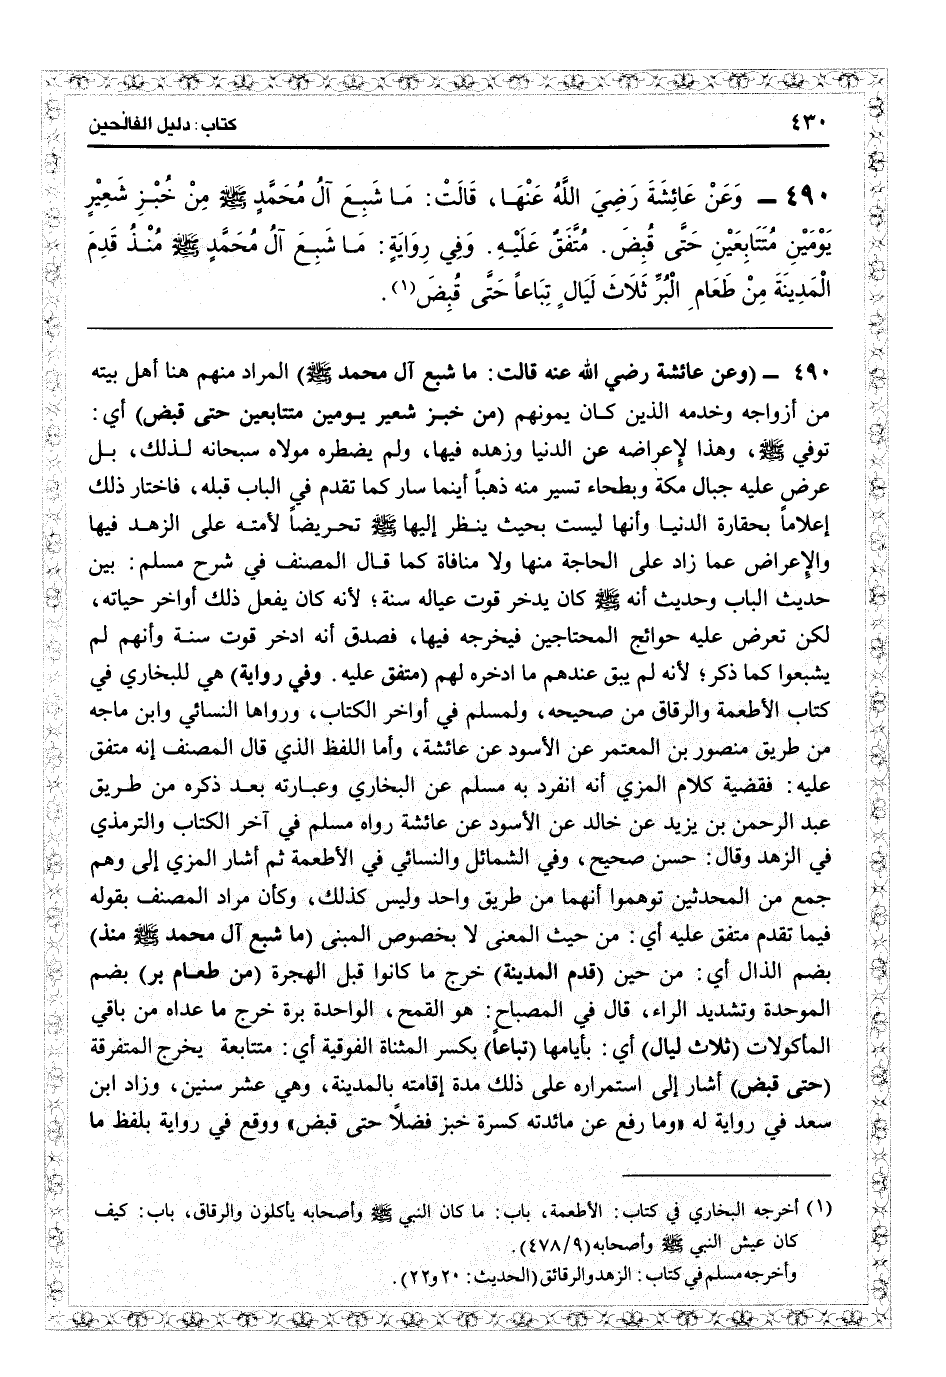 ٤٣٠ كتاب: دليل الفالحين
٤٩٠ ـ وَعَنْ عَائِشَةَ رَضِيَ اللَّهُ عَنْهَا، قَالَتْ: مَا شَبِعَ آلُ مُحَمَّدٍ ﷺ مِنْ خُبْزِ شَعِيْرٍ
يَوْمَيْنِ مُتَتَابِعَيْنِ حَتَّى قُبِضَ. مُتَّفَقٌ عَلَيْهِ. وَفِي رِوَايَةٍ: مَا شَبِعَ آلُ مُحَمَّدٍ ﷺ مُنْذُ قَدِمَ
الْمَدِينَةَ مِنْ طَعَامِ الْبُرِّ ثَلَاثَ لَيَالٍ تِبَاعاً حَتَّى قُبِضَ(١).
٤٩٠ ـ (وعن عائشة رضي الله عنه قالت: ما شبع آل محمد ﷺ) المراد منهم هنا أهل بيته
من أزواجه وخدمه الذين كان يمونهم (من خبز شعير يومين متتابعين حتى قبض) أي:
توفي ﷺ، وهذا لإعراضه عن الدنيا وزهده فيها، ولم يضطره مولاه سبحانه لذلك، بل
عرض عليه جبال مكة وبطحاء تسير منه ذهباً أينما سار كما تقدم في الباب قبله، فاختار ذلك
إعلاماً بحقارة الدنيا وأنها ليست بحيث ينظر إليها ﷺ تحريضاً لأمته على الزهد فيها
والإعراض عما زاد على الحاجة منها ولا منافاة كما قال المصنف في شرح مسلم: بين
حديث الباب وحديث أنه ﷺ كان يدخر قوت عياله سنة؛ لأنه كان يفعل ذلك أواخر حياته،
لكن تعرض عليه حوائج المحتاجين فيخرجه فيها، فصدق أنه ادخر قوت سنة وأنهم لم
يشبعوا كما ذكر؛ لأنه لم يبق عندهم ما ادخره لهم (متفق عليه. وفي رواية) هي للبخاري في
كتاب الأطعمة والرقاق من صحيحه، ولمسلم في أواخر الكتاب، ورواها النسائي وابن ماجه
من طريق منصور بن المعتمر عن الأسود عن عائشة، وأما اللفظ الذي قال المصنف إنه متفق
عليه: فقضية كلام المزي أنه انفرد به مسلم عن البخاري وعبارته بعد ذكره من طريق
عبد الرحمن بن يزيد عن خالد عن الأسود عن عائشة رواه مسلم في آخر الكتاب والترمذي
في الزهد وقال: حسن صحيح، وفي الشمائل والنسائي في الأطعمة ثم أشار المزي إلى وهم
جمع من المحدثين توهموا أنهما من طريق واحد وليس كذلك، وكأن مراد المصنف بقوله
فيما تقدم متفق عليه أي: من حيث المعنى لا بخصوص المبنى (ما شبع آل محمد ﷺ منذ)
بضم الذال أي: من حين (قدم المدينة) خرج ما كانوا قبل الهجرة (من طعام بر) بضم
الموحدة وتشديد الراء، قال في المصباح: هو القمح، الواحدة برة خرج ما عداه من باقي
المأكولات (ثلاث ليال) أي: بأيامها (تباعاً) بكسر المثناة الفوقية أي: متتابعة يخرج المتفرقة
(حتى قبض) أشار إلى استمراره على ذلك مدة إقامته بالمدينة، وهي عشر سنين، وزاد ابن
سعد في رواية له «وما رفع عن مائدته كسرة خبز فضلاً حتى قبض» ووقع في رواية بلفظ ما
(١) أخرجه البخاري في كتاب: الأطعمة، باب: ما كان النبي ﷺ وأصحابه يأكلون والرقاق، باب: كيف
كان عيش النبي ﷺ وأصحابه (٤٧٨/٩).
وأخرجه مسلم في كتاب: الزهد والرقائق (الحديث: ٢٠ و٢٢).